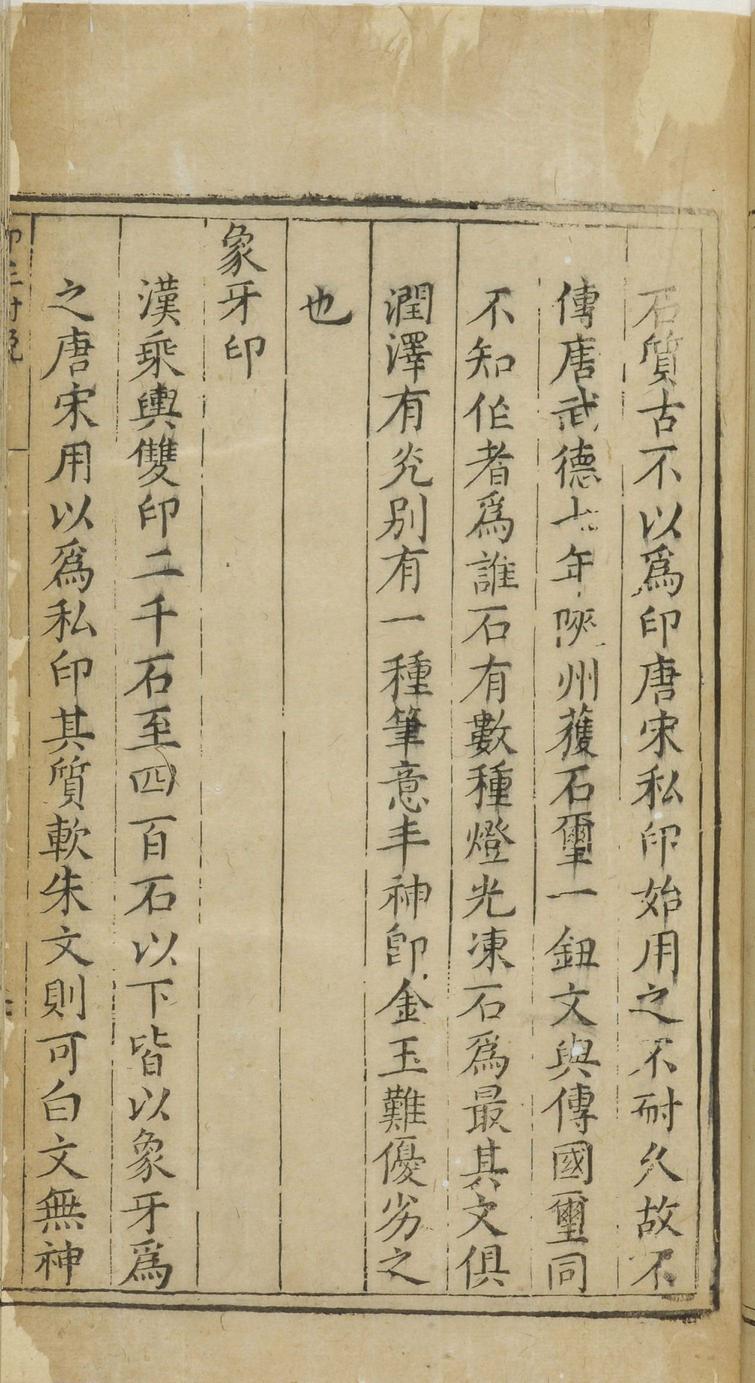 石質古不以爲印唐宋私印始用之不耐久故不
傳唐武德七年陝州獲石璽一鈕文與傳國璽同
不知作者爲誰石有數種燈光凍石爲最其文俱
潤澤有光別有一種筆意丰神卽金玉難優劣之
也
象牙印
漢乘輿雙印二千石至四百石以下皆以象牙爲
之唐宋用以爲私印其質軟朱文則可白文無神